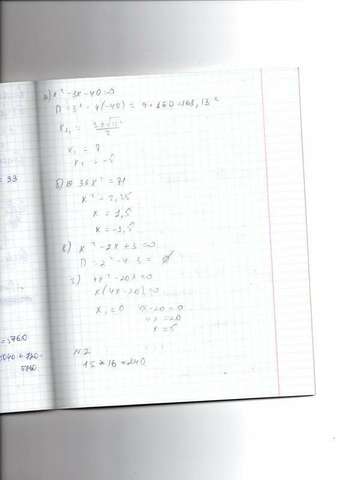 а) x² - 3x - 40 = 0
D = 3² - 4(-40) = 9 + 160 = 169, 13²
x₁,₂ =
x₁ = 8
x₂ = -5
б) 36x² = 81
x² = 2,25
x = 1,5
x = -1,5
в) x² - 2x + 3 = 0
D = 2² - 4·3 = ∅
г) 4x² - 20x = 0
x(4x - 20) = 0
x₁ = 0 4x - 20 = 0
4x = 20
x = 5
N 2
15 × 16 = 240
= 33
= 5760